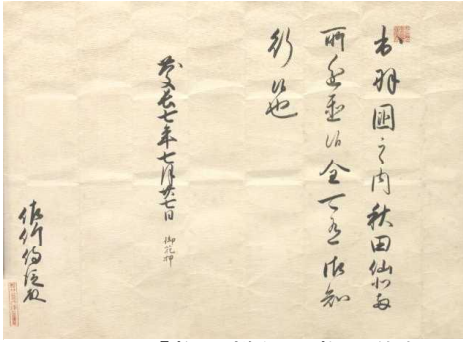 出羽國之内秋田仙北両
所進置候全可有御知
行候也
慶長七年七月廿七日 御花押
佐竹侍従殿